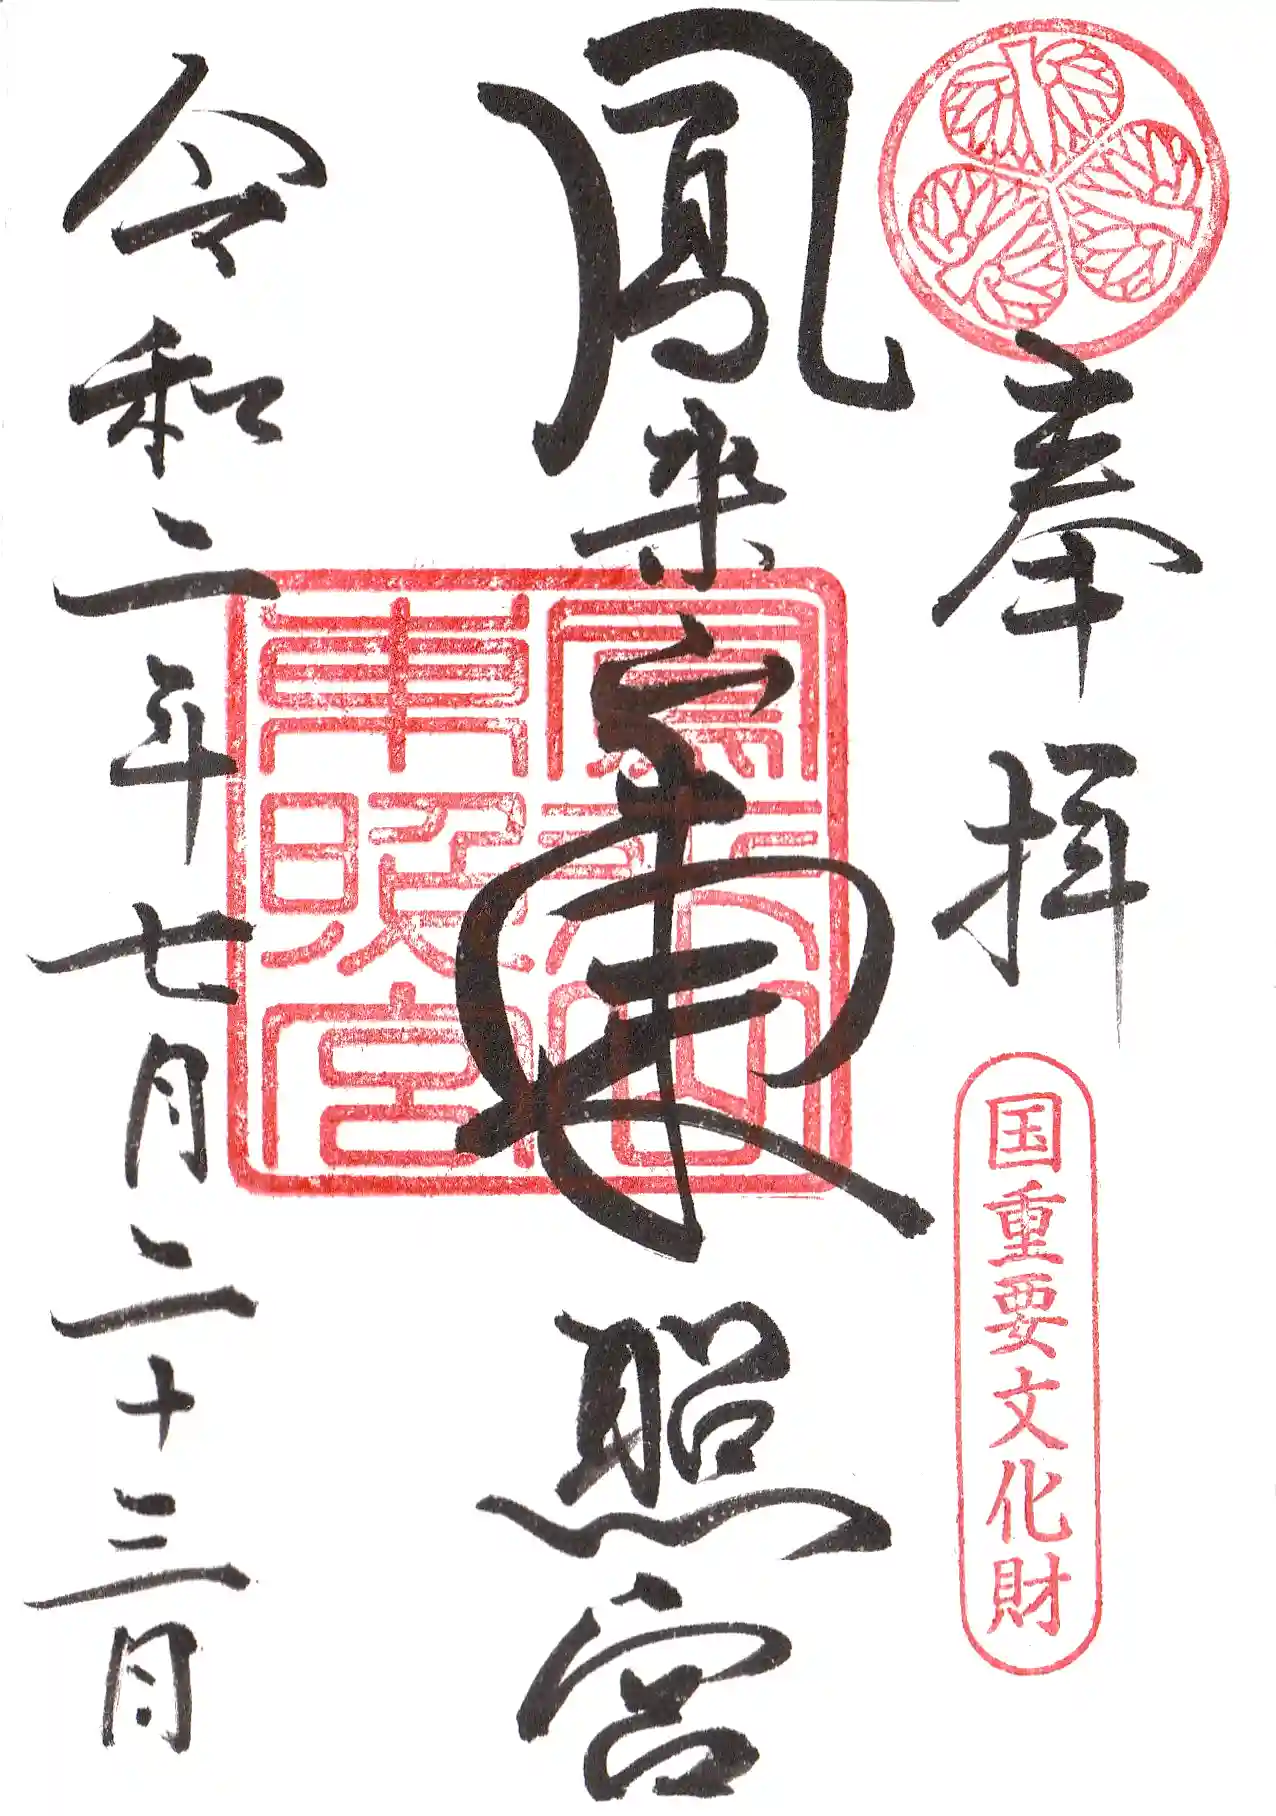 奉拝
国重要文化財
鳳来山東照宮
鳳来山
東照宮
令和二年七月二十三日